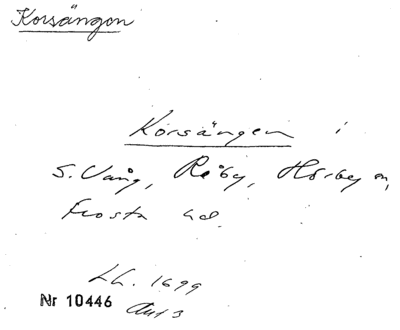 Korsängen
Korsängen i
S. Vång, Råby, Hörby sn,
Frosta hd.
Lh. 1699
Nr 10446